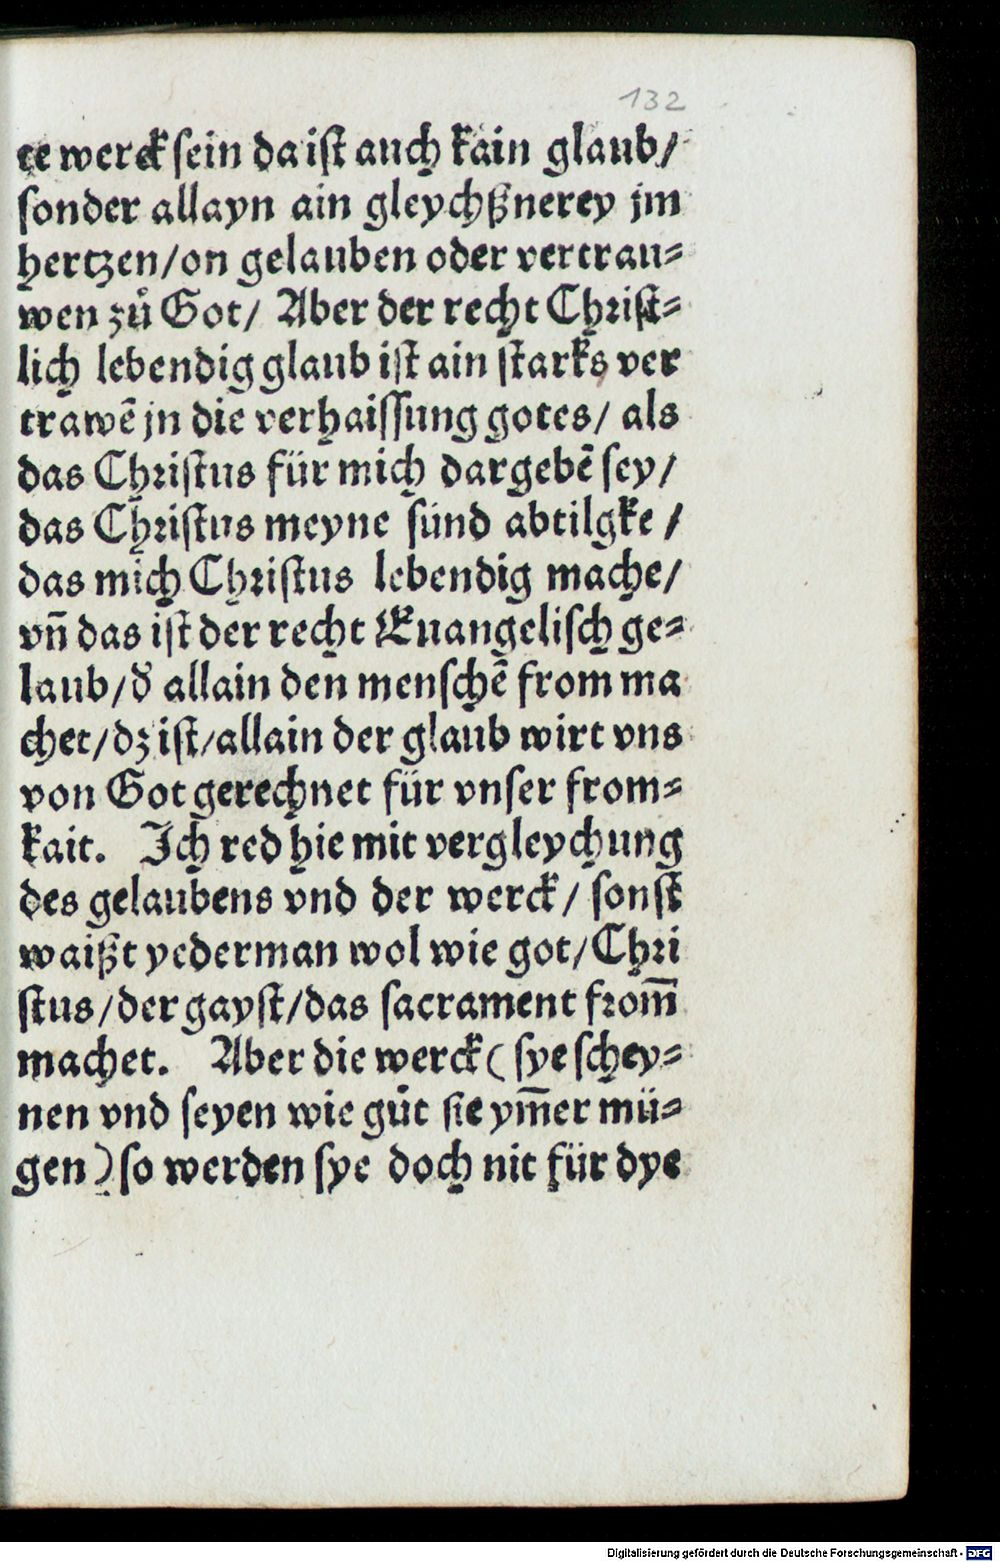 132
te werck sein da ist auch kain glaub/
sonder allayn ain gleychßnerey jm
hertzen/on gelauben oder vertrau⸗
wen zů Got/ Aber der recht Christ⸗
lich lebendig glaub ist ain starks ver
trawē jn die verhaissung gotes/ als
das Christus für mich dargebē sey/
das Christus meyne sünd abtilgke/
das mich Christus lebendig mache/
vn̄ das ist der recht Euangelisch ge⸗
laub/ď allain den menschē from ma
chet/dz ist/allain der glaub wirt vns
von Got gerechnet für vnser from⸗
kait. Ich red hie mit vergleychung
des gelaubens vnd der werck/ sonst
waißt yederman wol wie got/Chri
stus/der gayst/das sacrament from̄
machet. Aber die werck (sye schey⸗
nen vnd seyen wie gůt sie ym̄er mü⸗
gen) so werden sye doch nit für dye
Digitalisierung gefördert durch die Deutsche Forschungsgemeinschaft - DFG